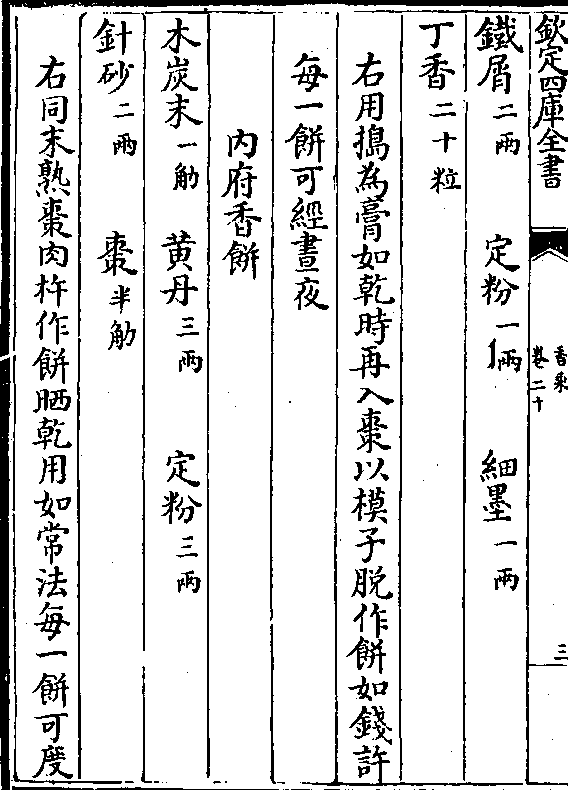 欽定四庫全書
香乘
卷二十
三
鐵屑二兩　定粉一兩　細墨一兩
丁香二十粒
右用搗為膏如乾時再入棗以模子脱作餅如錢許
每一餅可經晝夜
內府香餅
木炭末一觔　黄丹三兩　定粉三兩
針砂二兩　棗半觔
右同末熟棗肉杵作餅晒乾用如常法每一餅可度